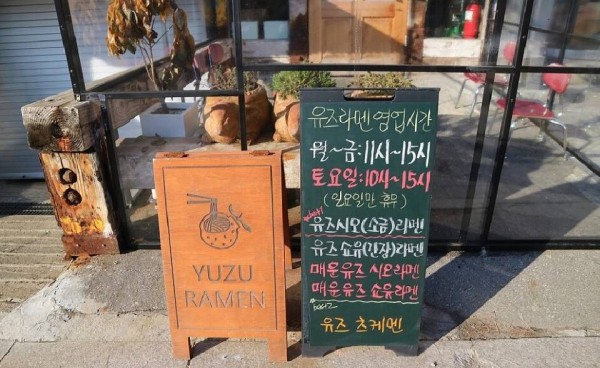 YUZU
RAMEN
유즈라멘 영업시간
월~금:11시~15시
토요일:10시~15시
(일요일만 휴무)
유즈시오(소금)라멘
유즈 쇼유(간장)라멘
매운유즈 시오라멘
매운유즈 쇼유라멘
유즈 츠케멘